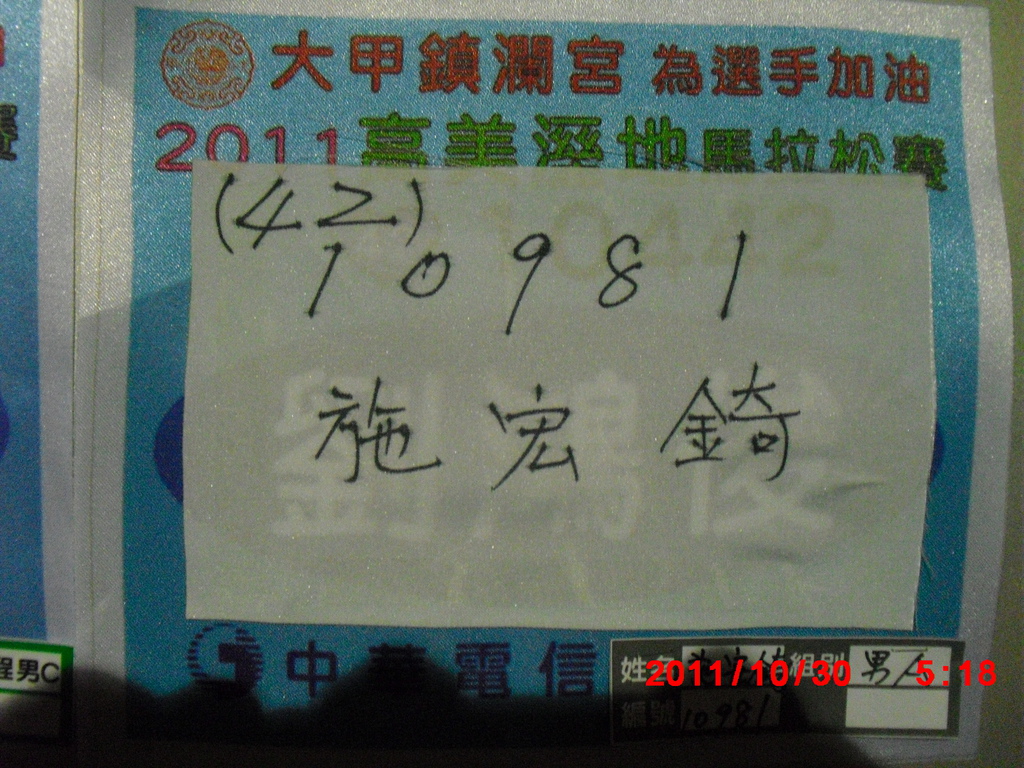 大甲鎮瀾宮 為選手加油
2011高美溼地馬拉松賽
(42)
10981
施宏錡
中華電信
姓名 組別 男A
編號 10981
程男C
2011/10/30 5:18